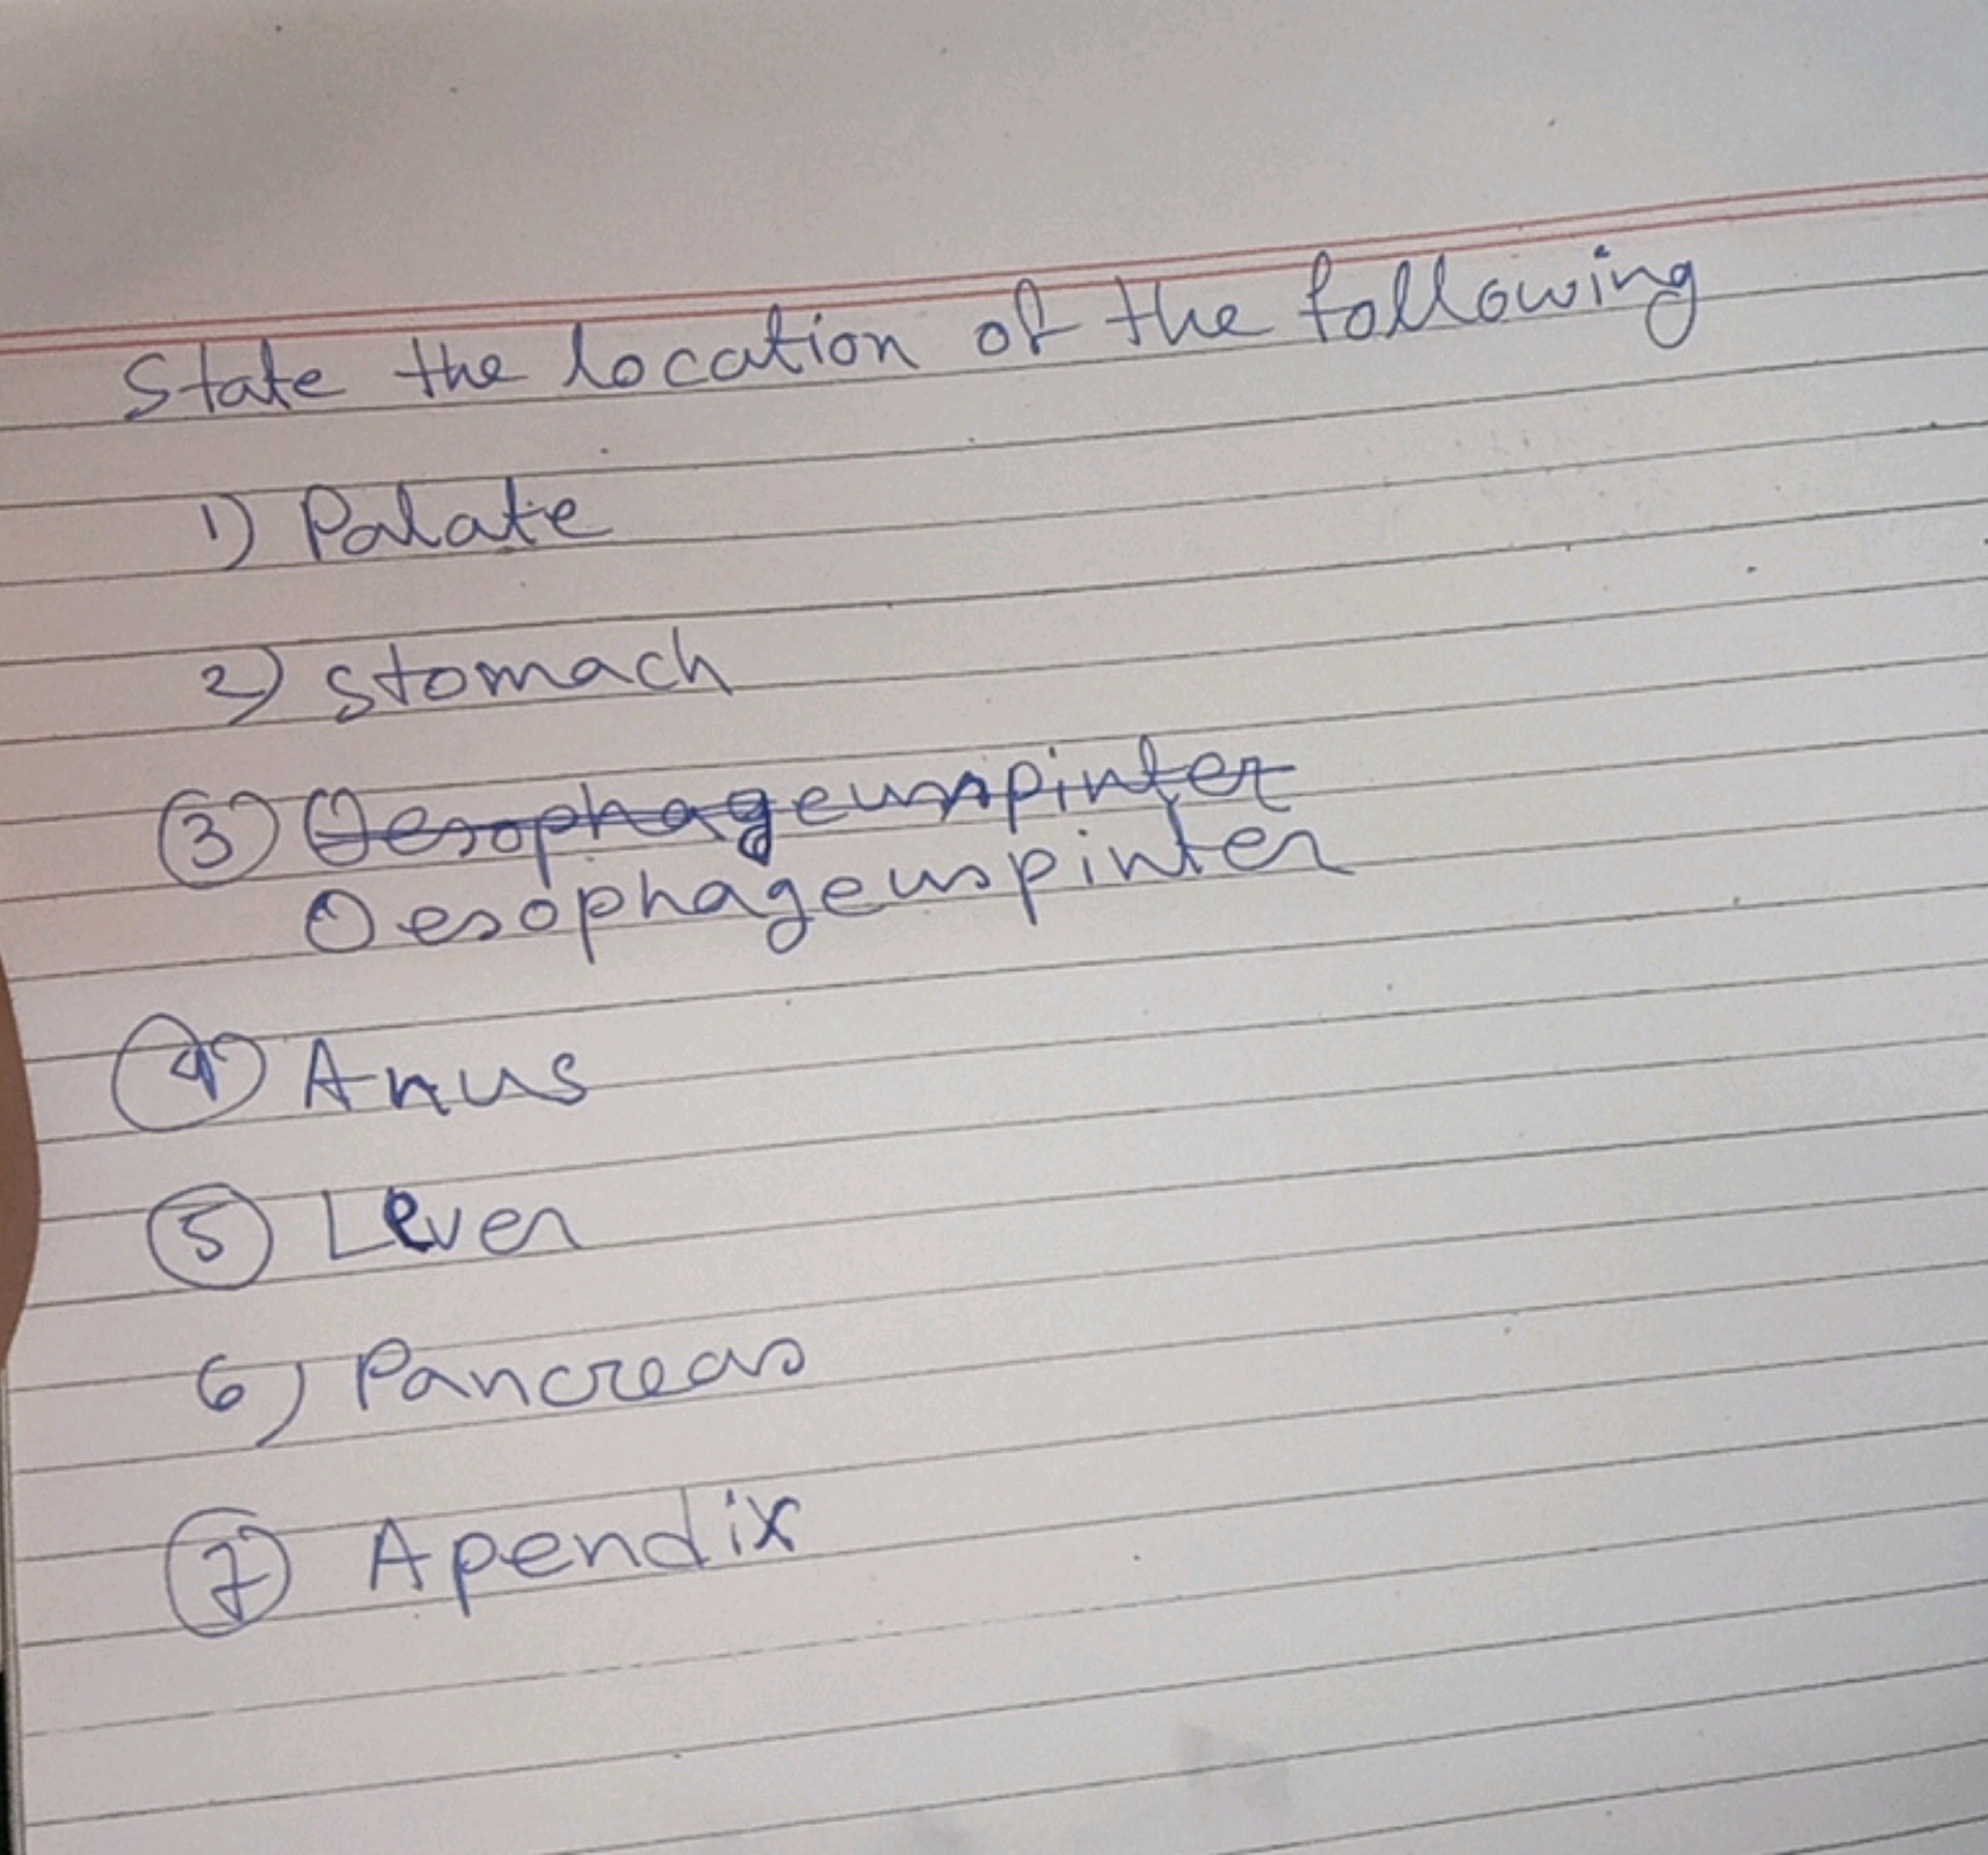 State the location of the following
1) Palate
2) Stomach
3) Oesophageuspinter
Oesophageuspinter
4) Anus
5) Lever
6) Pancreas
7) Apendix